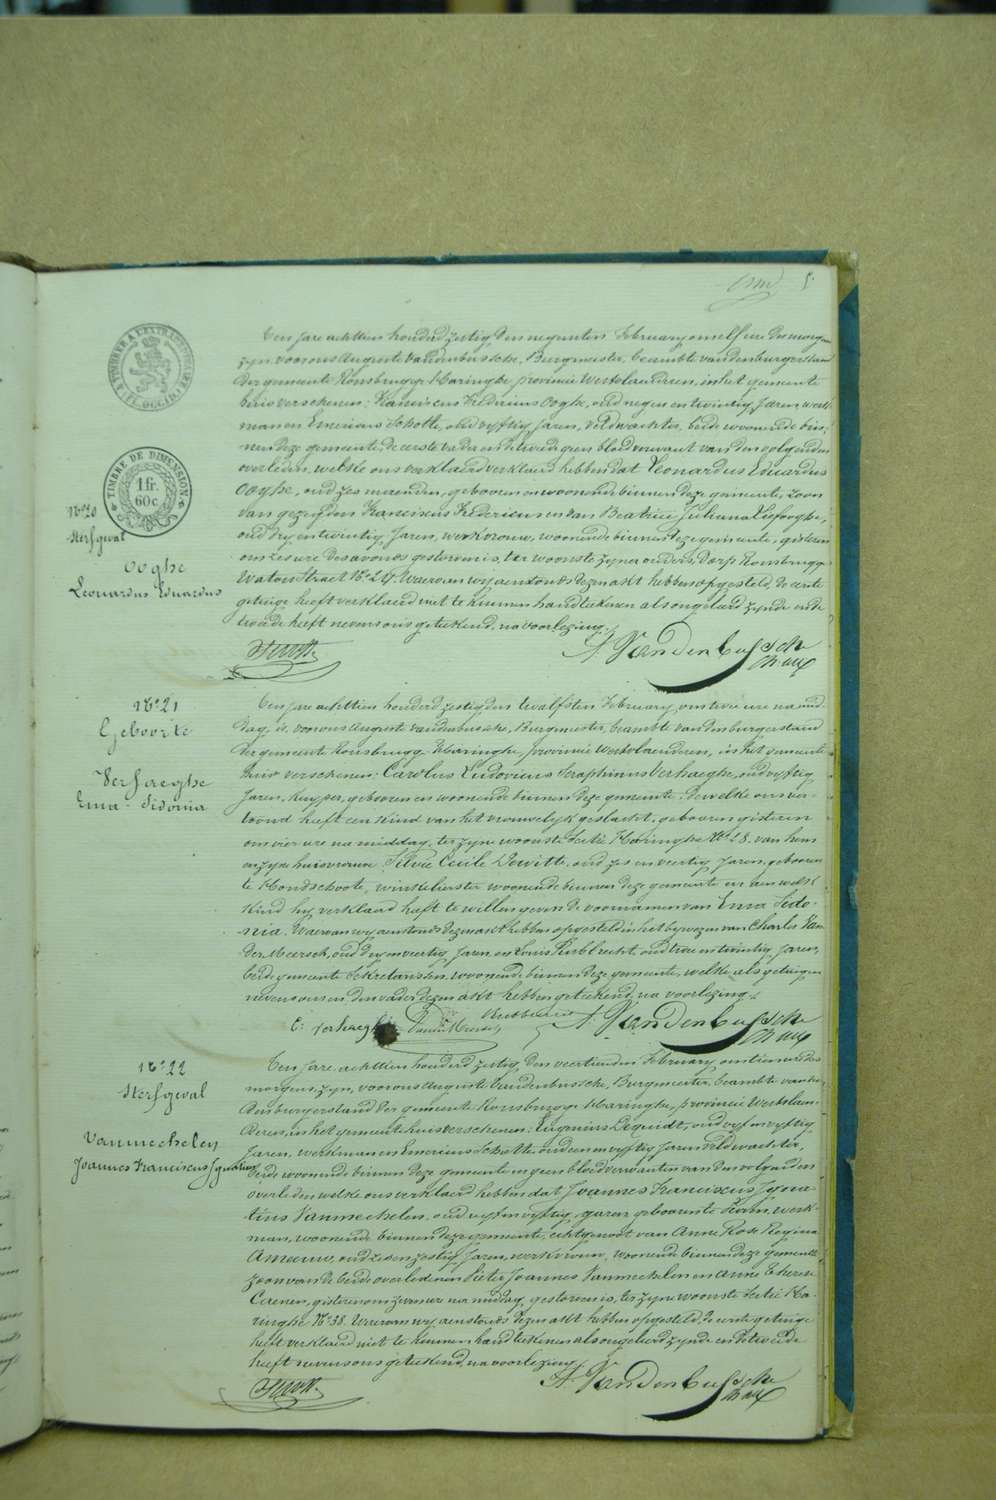 TIMBRE A L'EXTRAORDINAIRE
FL. OCCID.
TIMBRE DE DIMENSION
1 fr.
60 c.
Een jare achttien honderd zestig, den negensten February om elf ure des morgens
zyn voor ons Auguste Vandenbussche, Burgmeester, beambte van den burgerstand
der gemeente Rousbrugge Haringhe, provincie Westvlaendren, in het gemeente
huis verschenen: Franciscus Fredericus Ooghe, oud negen en twintig Jaren, werk-
man en Emerians Schotte, oud vyftig Jaren, Veldwachter, beide woonende bin-
nen deze gemeente, de eerste vader en de tweede geen bloedverwant van den volgenden
overleden, welke ons verklaerd hebben dat Leonardus Eduardus
Ooghe, oud zes maenden, geboren en woonende binnen deze gemeente, zoon
van gezegden Franciscus Fredericus en van Beatrice Juliana
oud dry en twintig Jaren, werkvrouw, woonende binnen deze gemeente, gisteren
om zes ure des avonds gestorven is, ter woonste zyner ouders, dorp Rousbrugge
Watou Straet No. Waervan wy aenstonds dezen akt hebben opgesteld, de eerste
getuige heeft verklaerd niet te kunnen handteekenen als ongeleerd zynde en de
tweede heeft nevens ons geteekend, na voorlezing.
No. 20
Sterfgeval
Ooghe
Leonardus Eduardus
A. Vandenbussche
No. 21
Geboorte
Verhaeghe
Ema Sidonia
Een jare achttien honderd zestig den twalfsten February, om twee ure na mid-
dag, is voor ons Auguste Vandenbussche, Burgmeester, beambte van den burgerstand
der gemeente Rousbrugge-Haringhe, provincie Westvlaendren, in het gemeente
huis verschenen: Carolus Ludovicus Seraphinus Verhaeghe, oud vyftig
Jaren, Kuyper, geboren en woonende binnen deze gemeente, dewelke ons ver-
toond heeft een kind van het vrouwelyk geslacht, geboren gisteren
om vier ure na middag, ter zyne woonste sectie Haringhe No. 28. van hem
en zyne huisvrouwe Silvie Cecile Dewitte, oud zes en veertig Jaren, geboren
te Hondschoote, winkelierster woonende binnen deze gemeente en aen welk
kind hy verklaerd heeft te willen geven de voornamen van Ema Sido-
nia. Waervan wy aenstonds dezen akt hebben opgesteld in het bywezen van Charles Van
der Meersch, oud dry en veertig Jaren en Louis Rubbrecht, oud twee en twintig Jaren,
beide gemeente Sekretarissen, woonende binnen deze gemeente, welke als getuigen
nevens ons en den vader dezen akt hebben geteekend, na voorlezing.
C: Verhaeghe
A. Vandenbussche
No. 22
Sterfgeval
Vanmechelen
Joannes Franciscus Ignatius
Een jare achttien honderd zestig, den veertienden February, om tien ure des
morgens, zyn, voor ons Auguste Vandenbussche, Burgmeester, beambte van
den burgerstand der gemeente Rousbrugge Haringhe, provincie Westvlaen-
deren, in het gemeente huis verschenen: Eugenius Dequidt, oud vyf en vyftig
Jaren, werkman en Emerians Schotte, oud een en vyftig Jaren Veldwachter,
beide woonende binnen deze gemeente en geen bloedverwanten van den volgenden
overleden welke ons verklaerd hebben dat Joannes Franciscus Igna-
tius Vanmechelen, oud vyf en vyftig Jaren geboren te werk-
man, woonende binnen deze gemeente, echtgenoot van Anne Rose Regina
oud zes en zestig Jaren, werkvrouw, woonende binnen deze gemeente
zoon van de beide overledenen Pieter Joannes Vanmechelen en Anne Therese
Coenen, gisteren om zeven ure na middag, gestorven is, ter zyne woonste sectie Ha-
ringhe No. 38. Waervan wy aenstonds dezen akt hebben opgesteld, de eerste getuige
heeft verklaerd niet te kunnen handteekenen als ongeleerd zynde en de tweede
heeft nevens ons geteekend, na voorlezing.
A. Vandenbussche